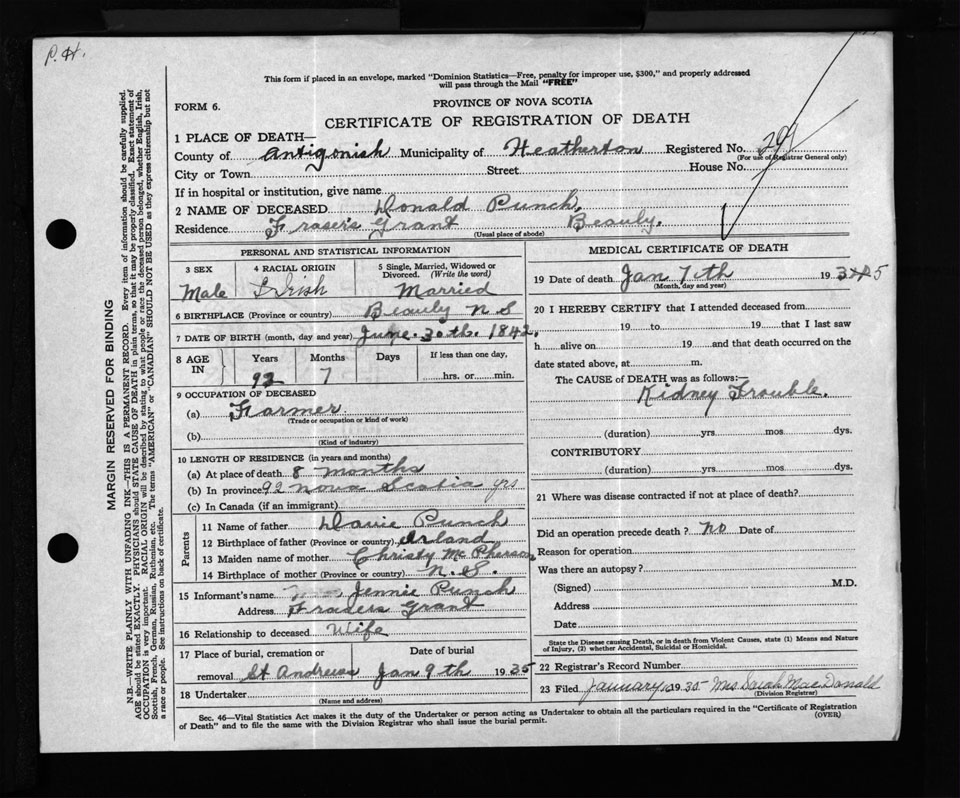 P. H.
This form if placed in an envelope, marked "Dominion Statistics—Free, penalty for improper use, $300," and properly addressed
will pass through the Mail "FREE"
FORM 6.
PROVINCE OF NOVA SCOTIA
CERTIFICATE OF REGISTRATION OF DEATH
1 PLACE OF DEATH—
County of Antigonish Municipality of Heatherton Registered No. 291
(For use of Registrar General only)
City or Town Street House No.
If in hospital or institution, give name
2 NAME OF DECEASED Donald Punch.
Residence Fraser's Grant Beauly.
(Usual place of abode)
PERSONAL AND STATISTICAL INFORMATION
3 SEX 4 RACIAL ORIGIN 5 Single, Married, Widowed or Divorced. (Write the word)
Male Irish Married
6 BIRTHPLACE (Province or country) Beauly N S
7 DATE OF BIRTH (month, day and year) June 30th. 1842.
8 AGE IN Years Months Days If less than one day,
92 7 hrs. or min.
9 OCCUPATION OF DECEASED
(a) Farmer.
(Trade or occupation or kind of work)
(b)
(Kind of industry)
10 LENGTH OF RESIDENCE (in years and months)
(a) At place of death 8 months
(b) In province 92 Nova Scotia yrs
(c) In Canada (if an immigrant)
Parents
11 Name of father Davie Punch
12 Birthplace of father (Province or country) Irland
13 Maiden name of mother Christy McPherson
14 Birthplace of mother (Province or country) N. S.
15 Informant's name Jennie Punch
Address Frasers Grant
16 Relationship to deceased Wife
17 Place of burial, cremation or removal Date of burial
St Andrews Jan 9th 1935
18 Undertaker
(Name and address)
MEDICAL CERTIFICATE OF DEATH
19 Date of death Jan 7th 193 5
(Month, day and year)
20 I HEREBY CERTIFY that I attended deceased from
19 to 19 that I last saw
h alive on 19 and that death occurred on the
date stated above, at m.
The CAUSE OF DEATH was as follows:—
Kidney Trouble.
(duration) yrs mos dys.
CONTRIBUTORY
(duration) yrs mos dys.
21 Where was disease contracted if not at place of death?
Did an operation precede death? No Date of
Reason for operation
Was there an autopsy?
(Signed) M.D.
Address
Date
State the Disease causing Death, or in death from Violent Causes, state (1) Means and Nature
of Injury, (2) whether Accidental, Suicidal or Homicidal.
22 Registrar's Record Number
23 Filed January 1935 Mrs Sarah MacDonald
(Division Registrar)
Sec. 46—Vital Statistics Act makes it the duty of the Undertaker or person acting as Undertaker to obtain all the particulars required in the "Certificate of Registration
of Death" and to file the same with the Division Registrar who shall issue the burial permit.
(OVER)
MARGIN RESERVED FOR BINDING
N.B.—WRITE PLAINLY WITH UNFADING INK—THIS IS A PERMANENT RECORD. Every item of information should be carefully supplied.
AGE should be stated EXACTLY. PHYSICIANS should STATE CAUSE OF DEATH in plain terms, so that it may be properly classified. Exact statement of
OCCUPATION is very important. RACIAL ORIGIN will be described by stating to what people or race the deceased person belonged, whether English, Irish,
Scottish, French, German, Russian, Ruthenian, etc. The terms "AMERICAN" or "CANADIAN" SHOULD NOT BE USED as they express citizenship but not
a race or people. See instructions on back of certificate.